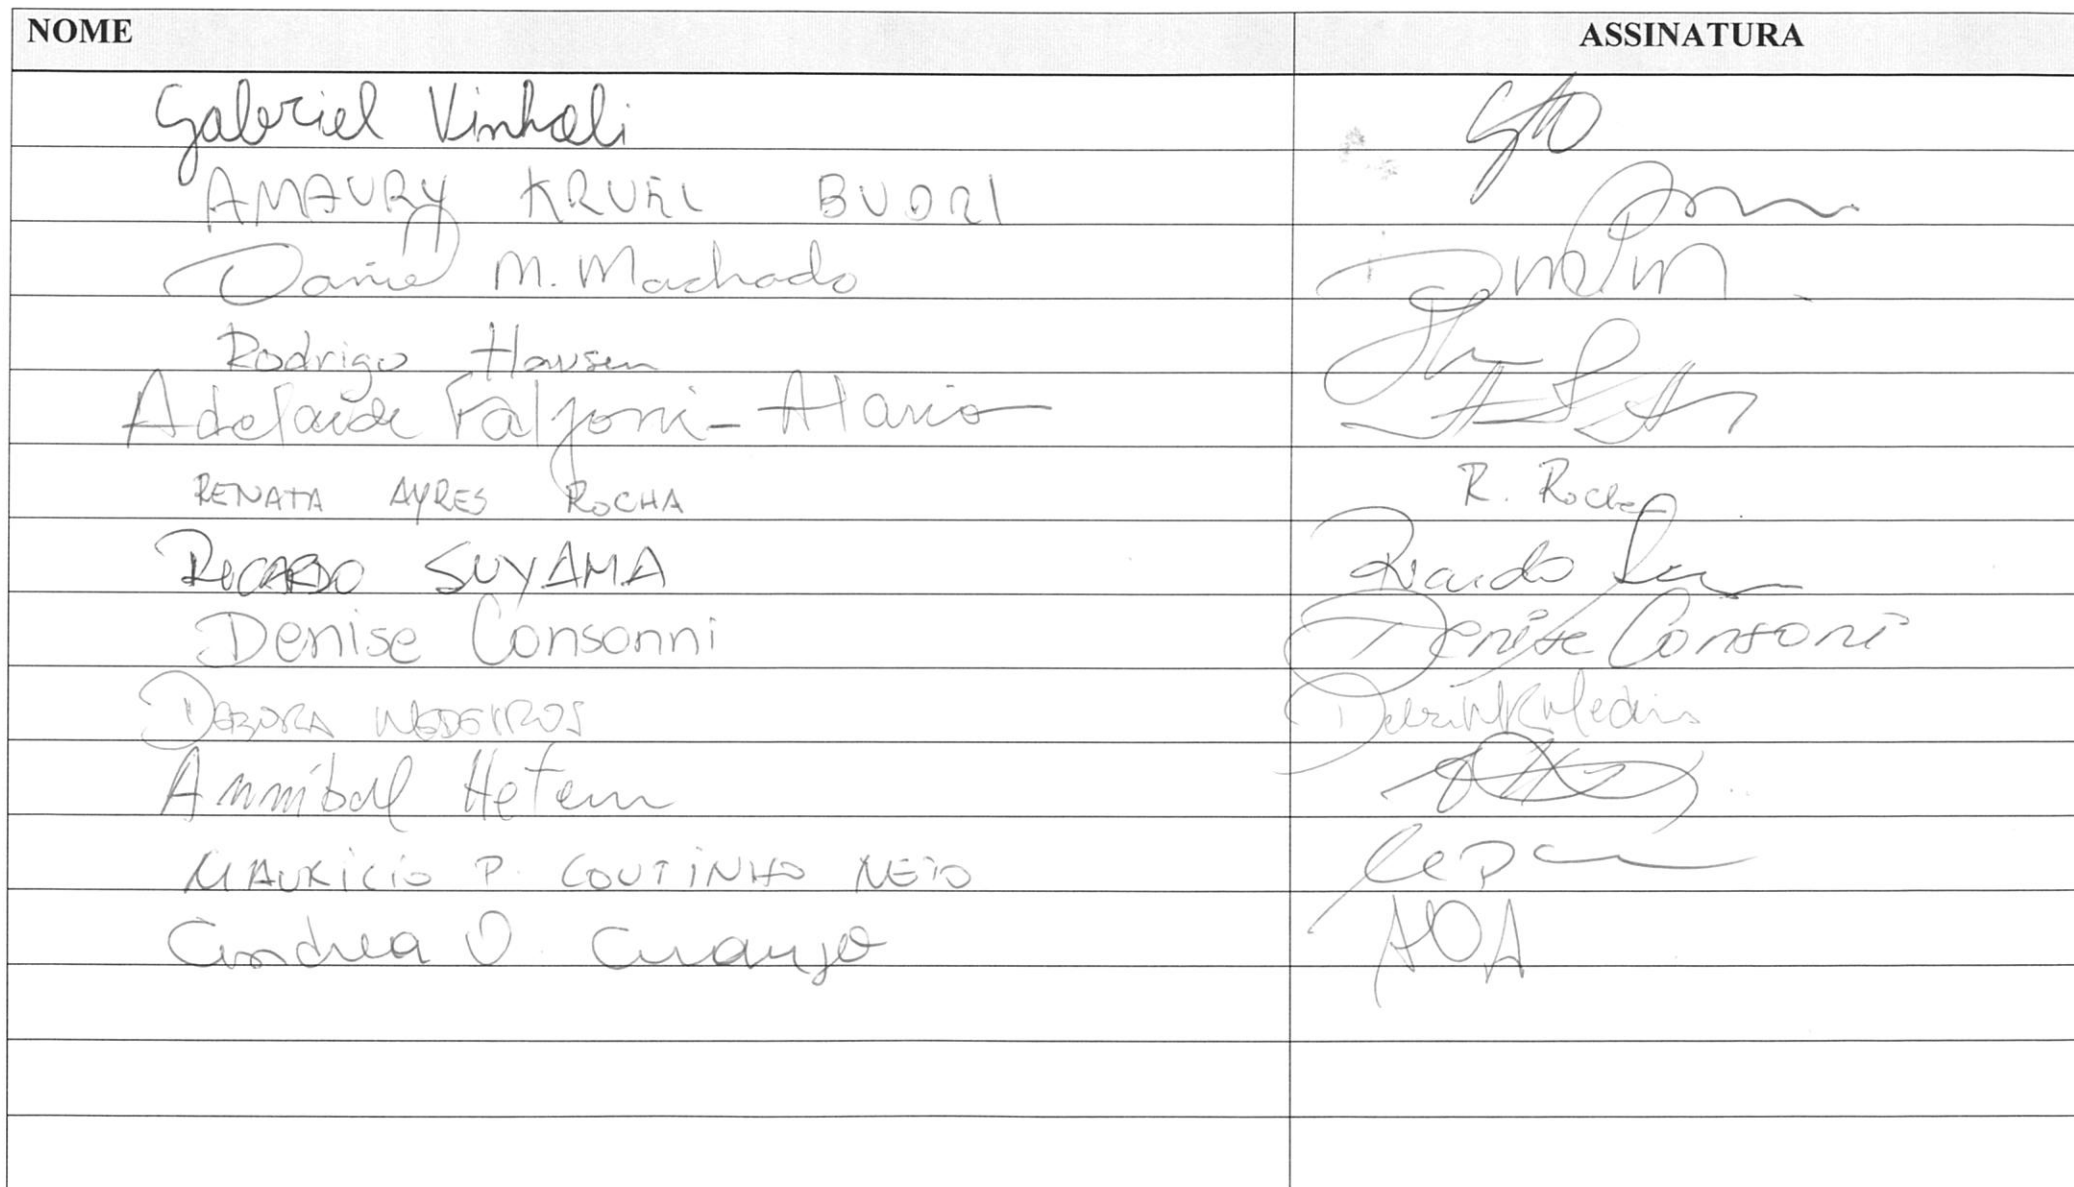 NOME ASSINATURA
Gabriel Vinholi
AMAURY KRUEL BUDRI
Daniel M. Machado
Rodrigo Hausen
Adelaide Faljoni-Alario
RENATA AYRES ROCHA R. Rocha
RICARDO SUYAMA Ricardo
Denise Consonni Denise Consoni
DEBORA MEDEIROS
Annibal Hetem
MAURÍCIO P. COUTINHO NETO
Andrea O. Araujo AOA